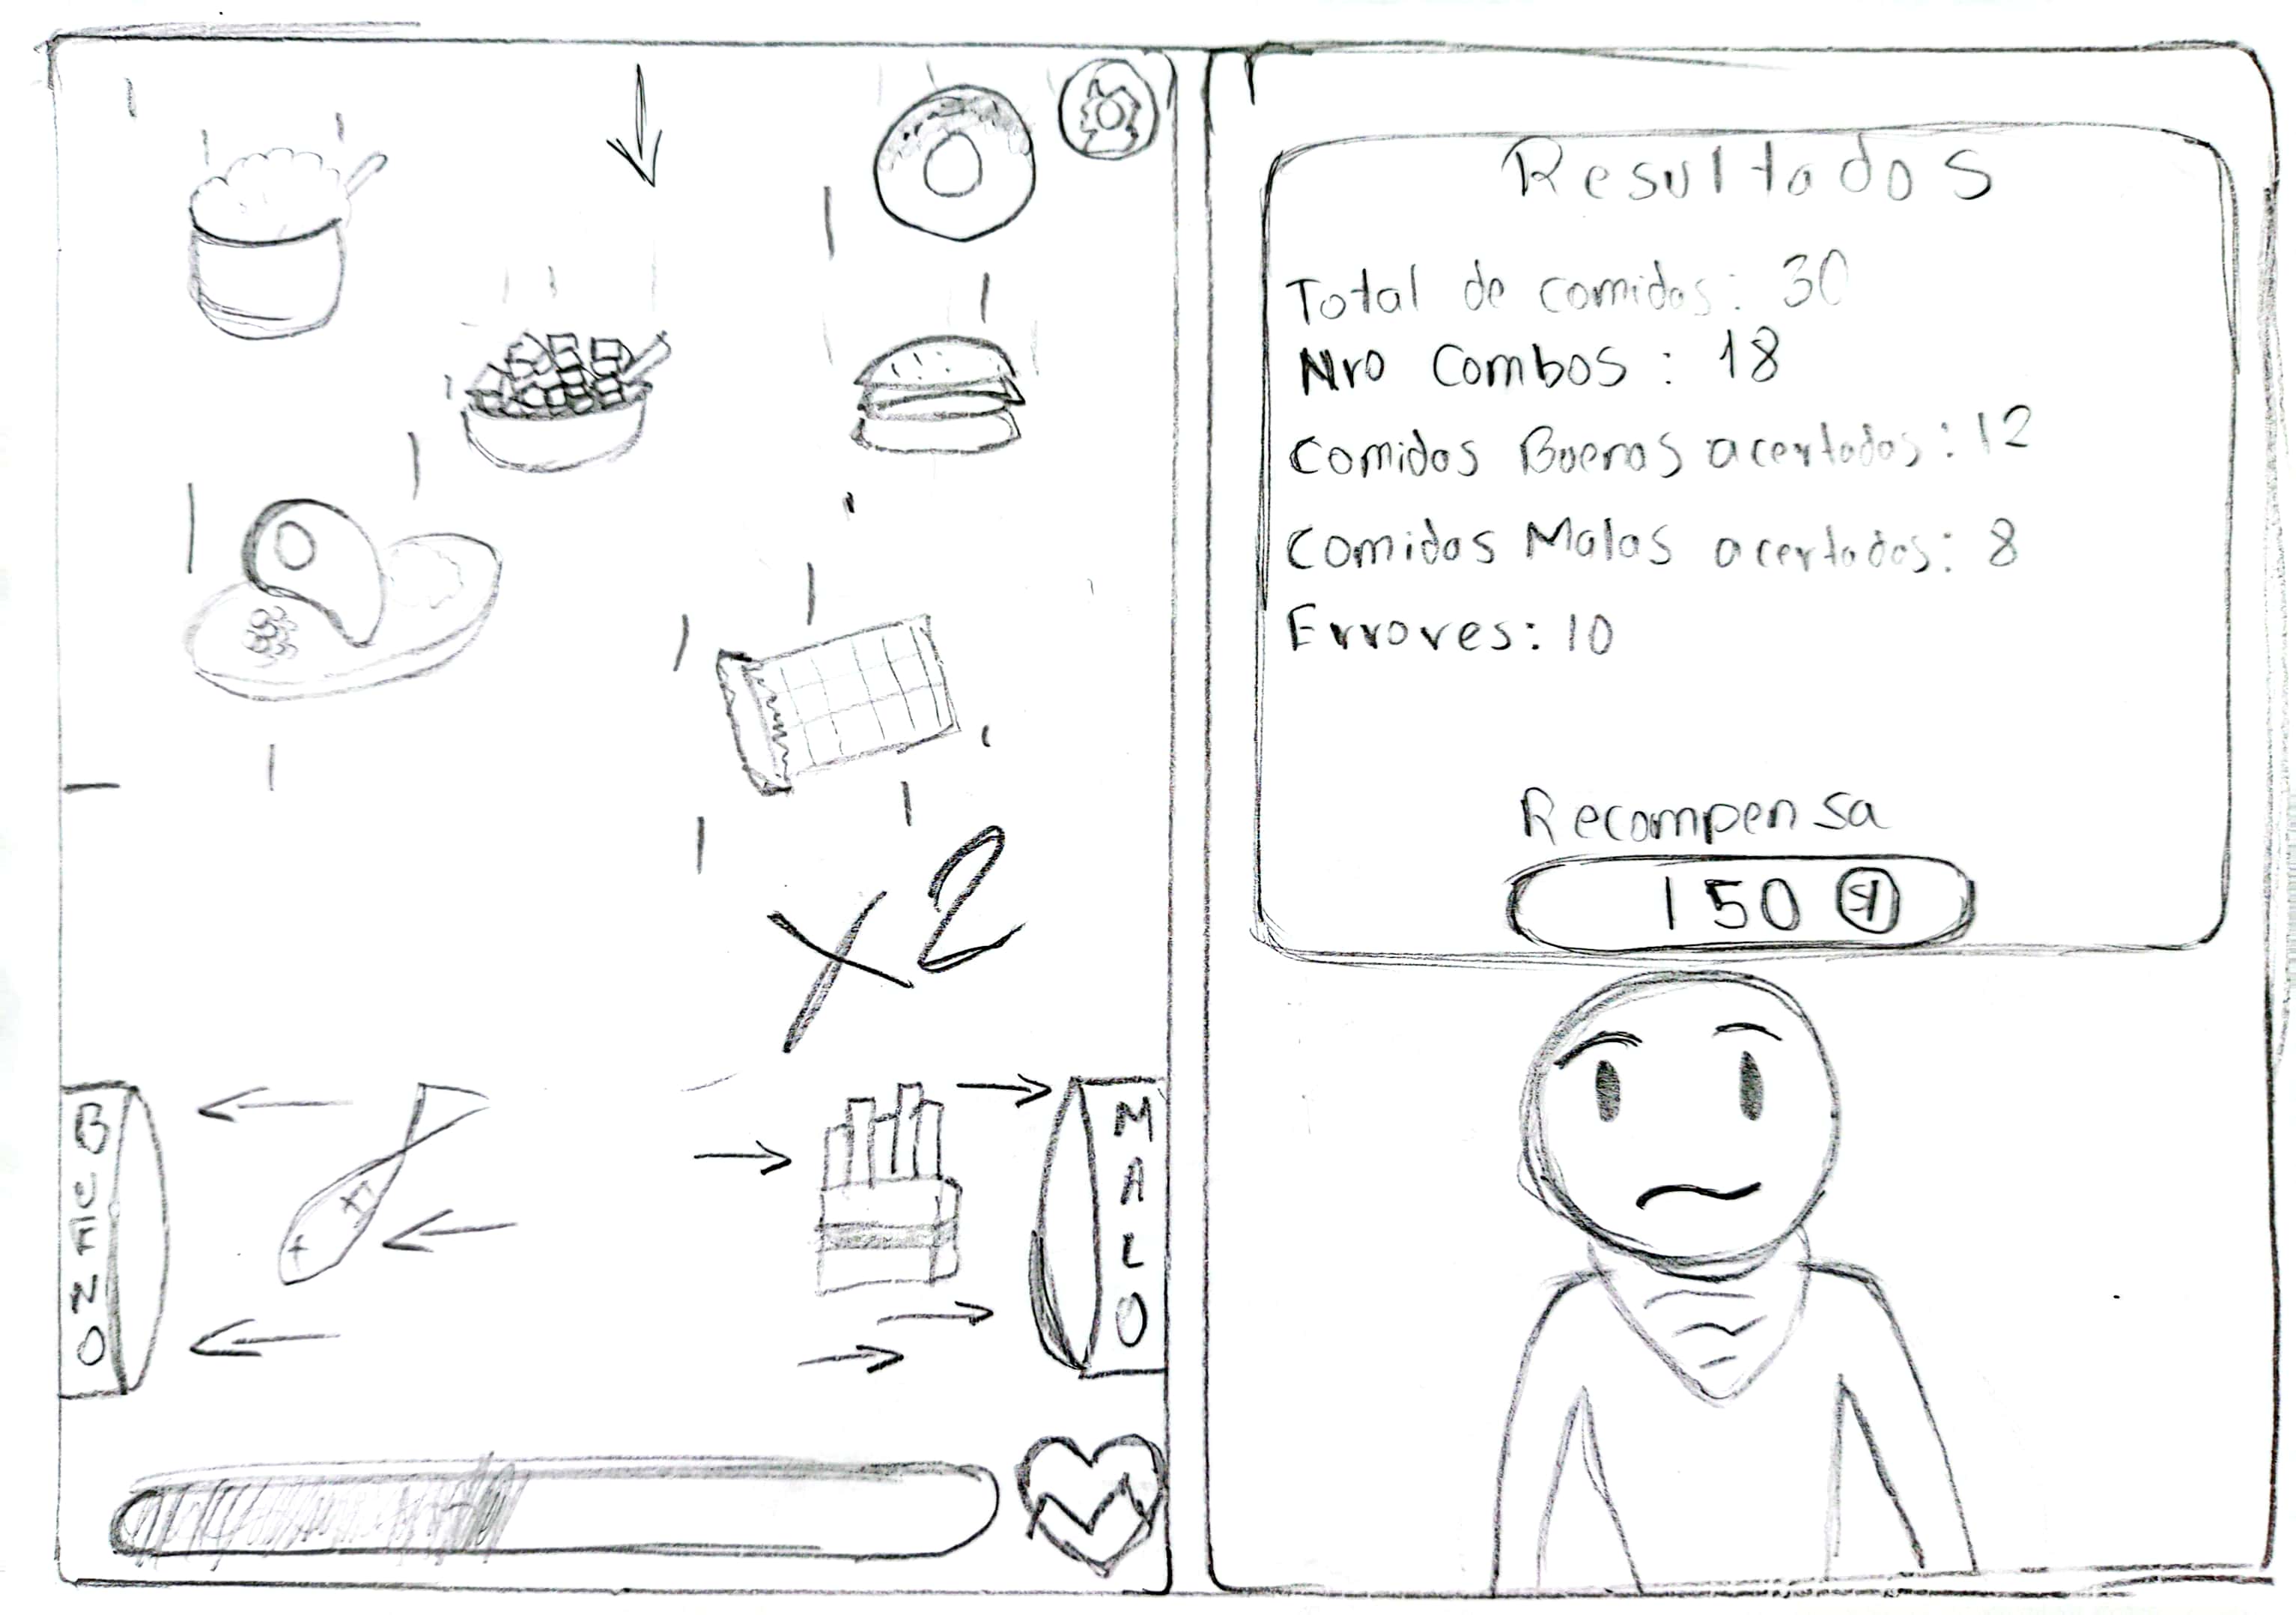 x2
BUENO
MALO
Resultados
Total de comidas: 30
Nro Combos : 18
Comidas Buenas acertadas: 12
Comidas Malas acertadas: 8
Errores: 10
Recompensa
150